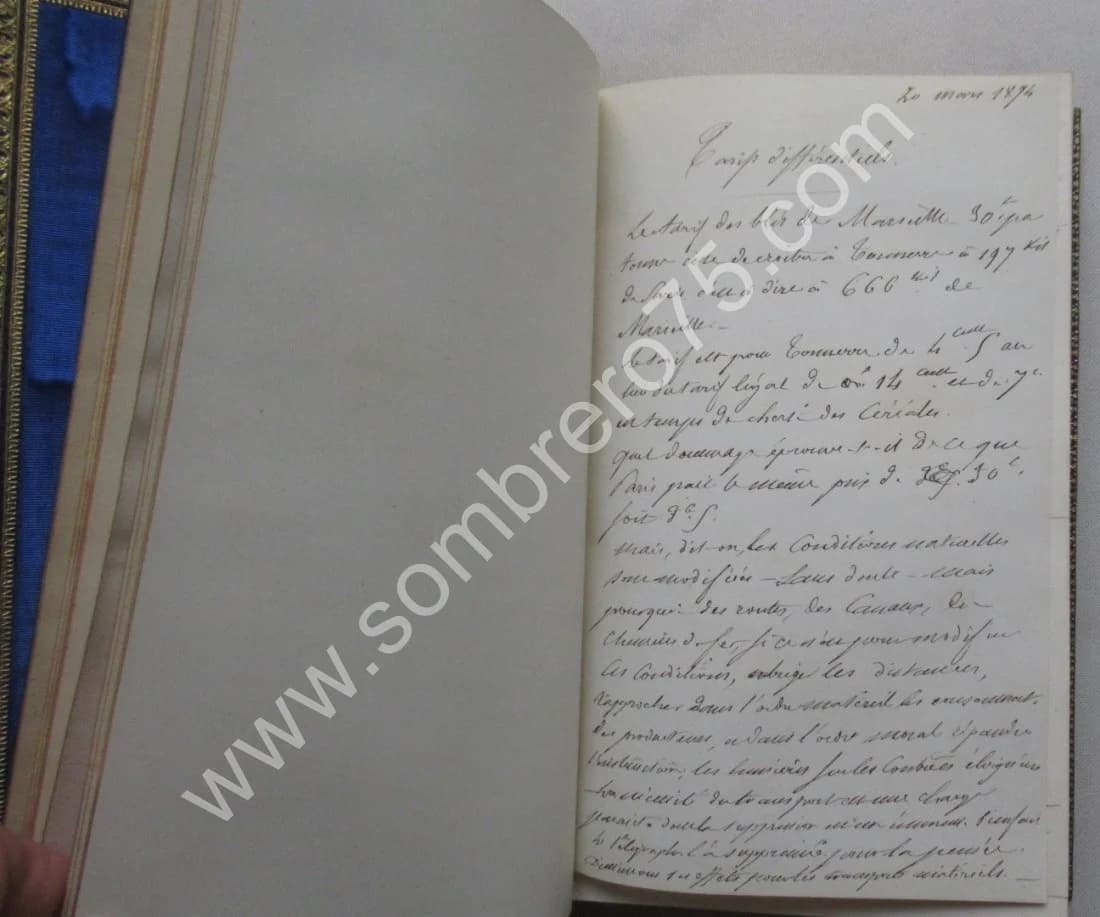 20 mars 1874
Tarifs différentiels.
Le tarif des blés de Marseille 30f pa
tonne de à Tonnerre à 197 Kil
de c'est à dire à 666 kil de
Marseille.
Le tarif est pour Tonnerre de 4 cent 5 au
lieu du tarif légal de 14 cent et de 7c
en temps de cherté des Céréales.
quel dommage éprouve-t-il de ce que
Paris paie le même prix de 30f.
soit 3c.5.
mais, dit-on, les Conditions naturelles
sont modifiées — Sans doute — mais
pourquoi des routes, des Canaux, de
chemins de fer, si ce n'est pour modifier
les Conditions, abrège les distances,
rapprocher dans l'ordre matériel les consommat.
des producteurs, et dans l'ordre moral répandre
l'instruction, les lumières sur les Contrées éloignées
La nécessité du transport est une charge
la suppression
le Télégraphe l'a supprimée pour la pensée
ses effets pour les transports matériels. —
www.sombrero75.com